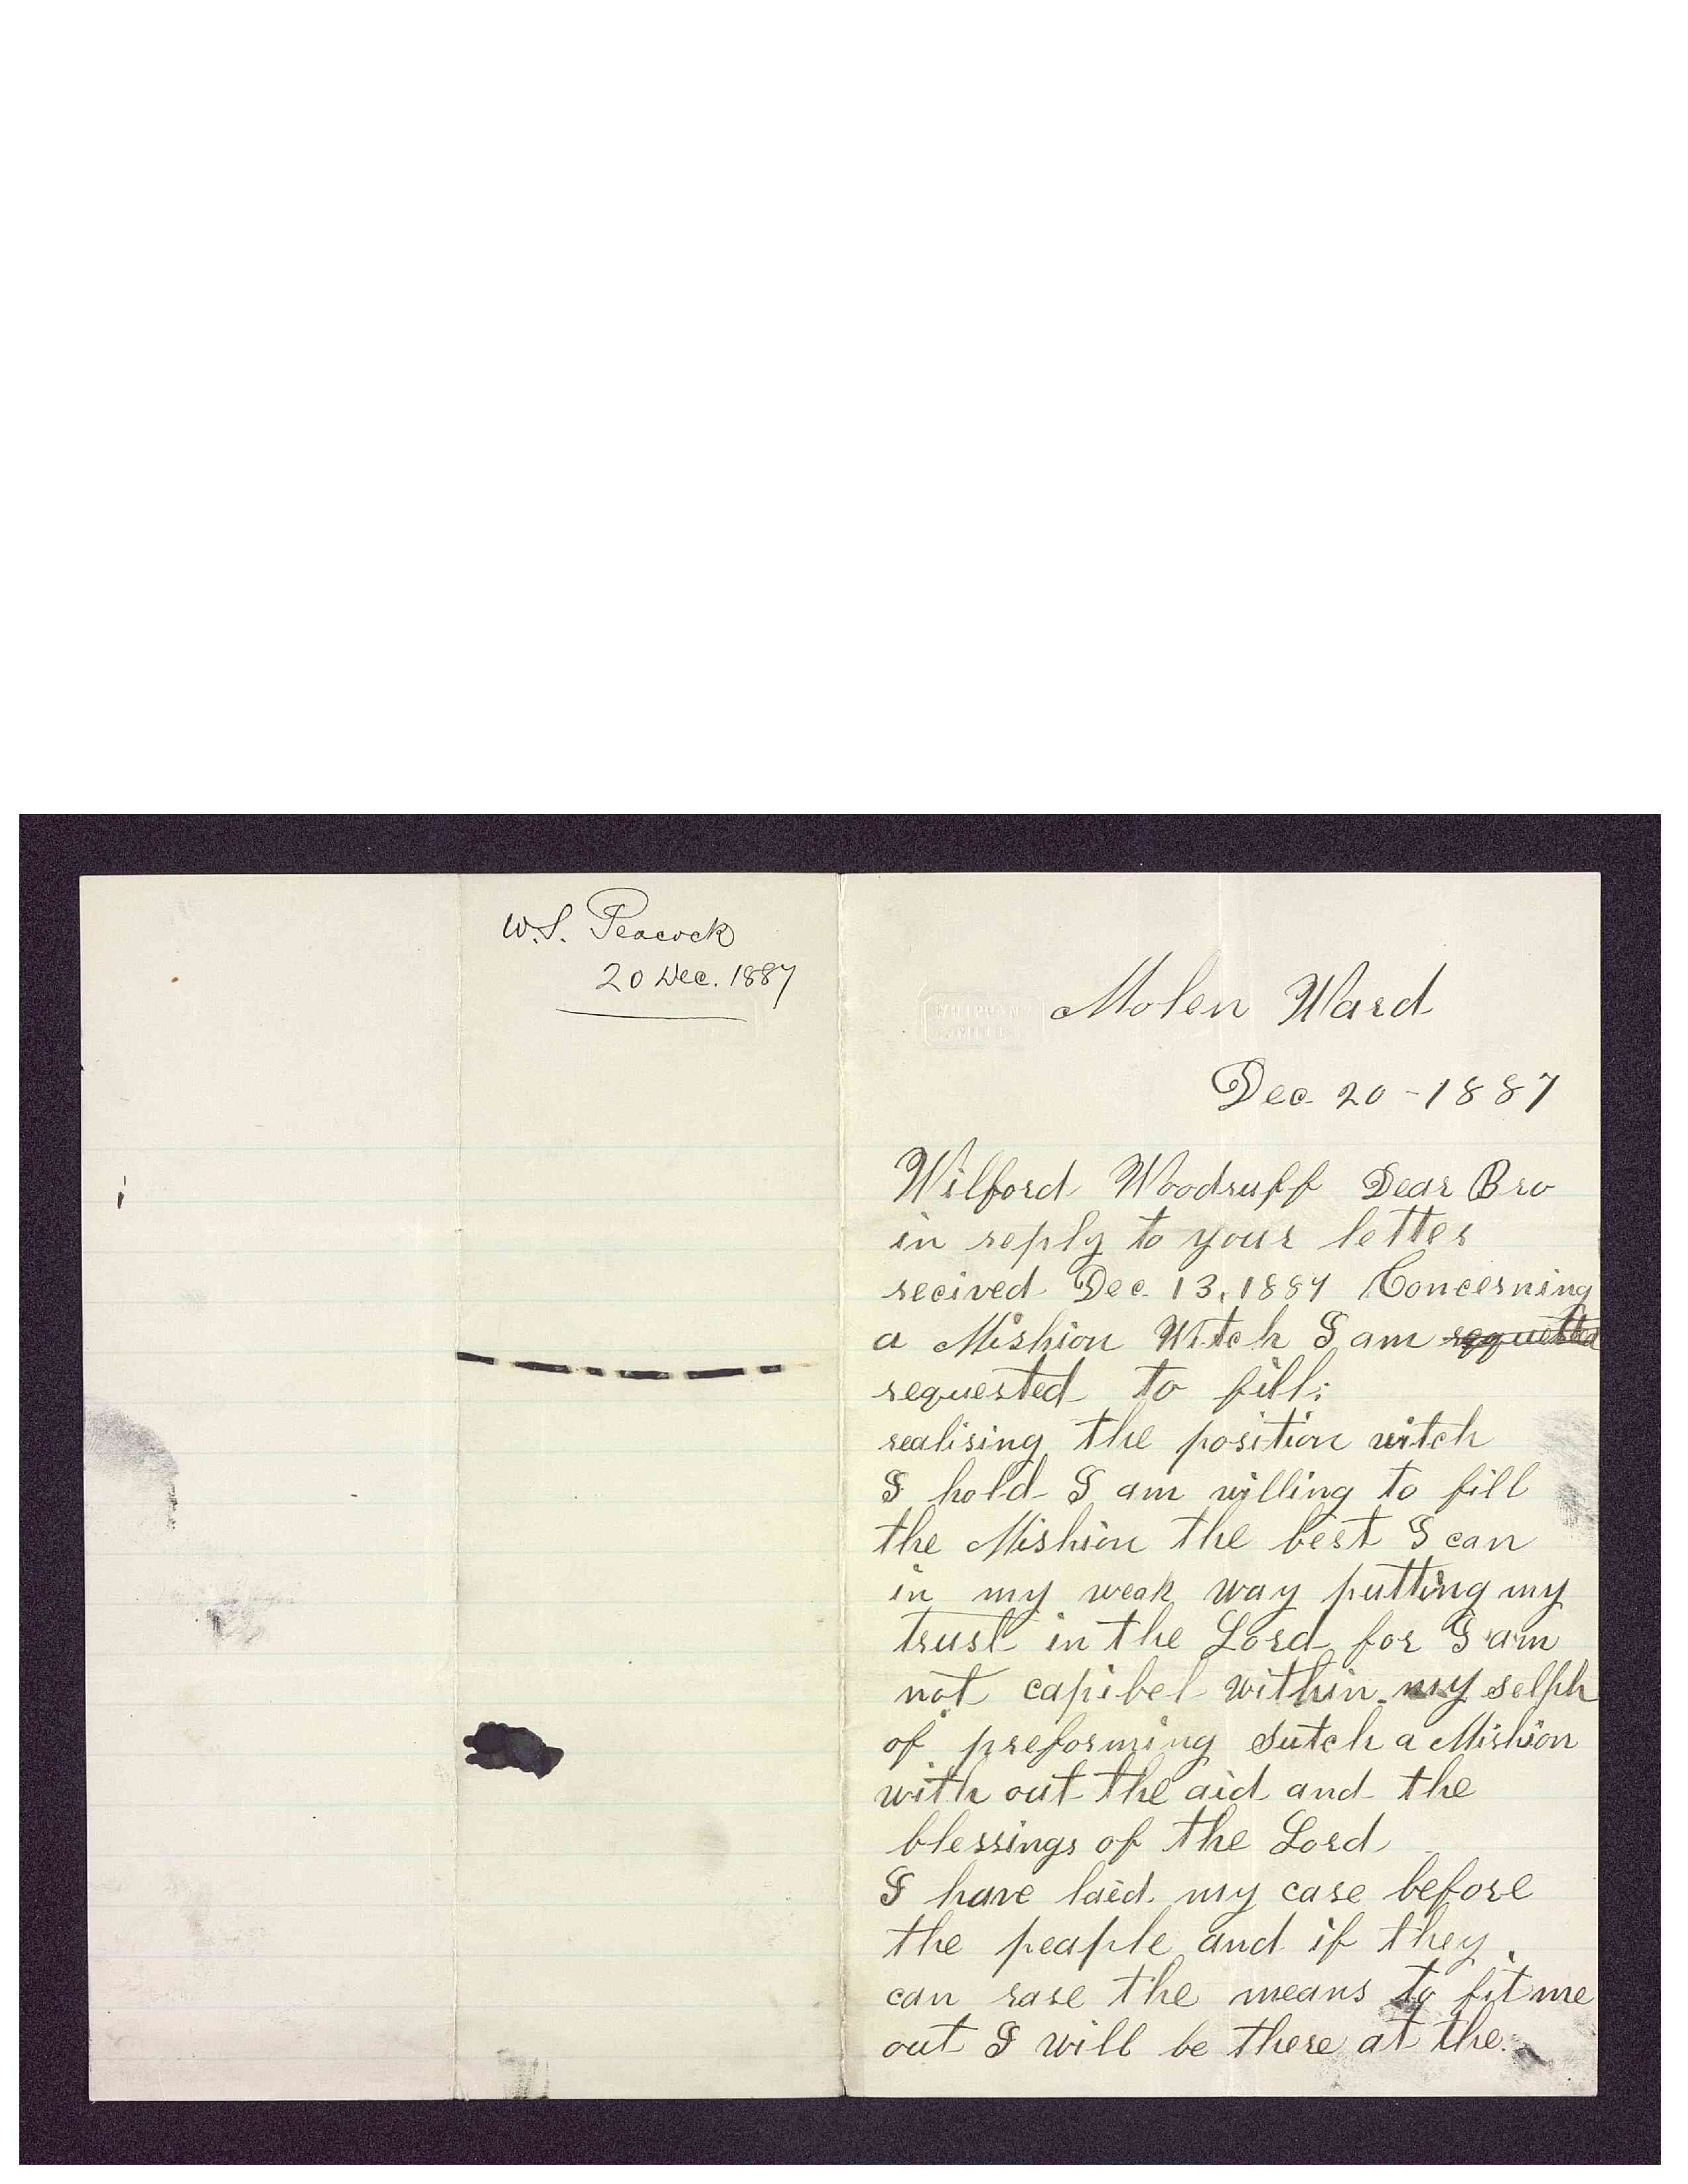 W.S. Peacock
20 Dec. 1887
Molen Ward
Dec. 20 - 1887
Wilford Woodruff Dear Bro
in reply to your letter
recived Dec. 13, 1887 Concerning
a Mishion Witch I am requested
requested to fill;
realising the position witch
I hold I am willing to fill
the Mishion the best I can
in my weak way putting my
trust in the Lord for I am
not capibel within my selph
of preforming sutch a Mishion
with out the aid and the
blessings of the Lord
I have laid my case before
the peaple and if they
can rase the means to fit me
out I will be there at the